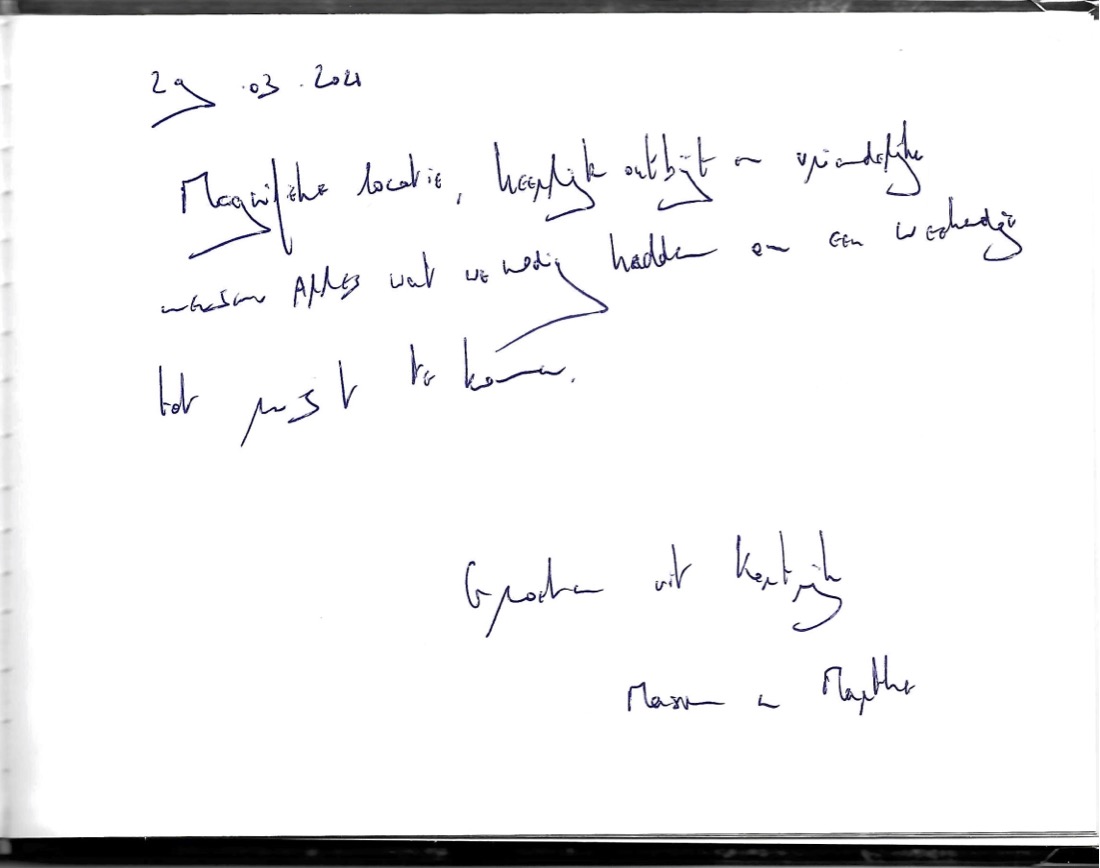 29.03.2021
Magnifieke locatie, heerlijk ontbijt en vriendelijke
mensen Alles wat we nodig hadden om een weekendje
tot rust te komen.
Groeten uit Kortrijk
en Marthe